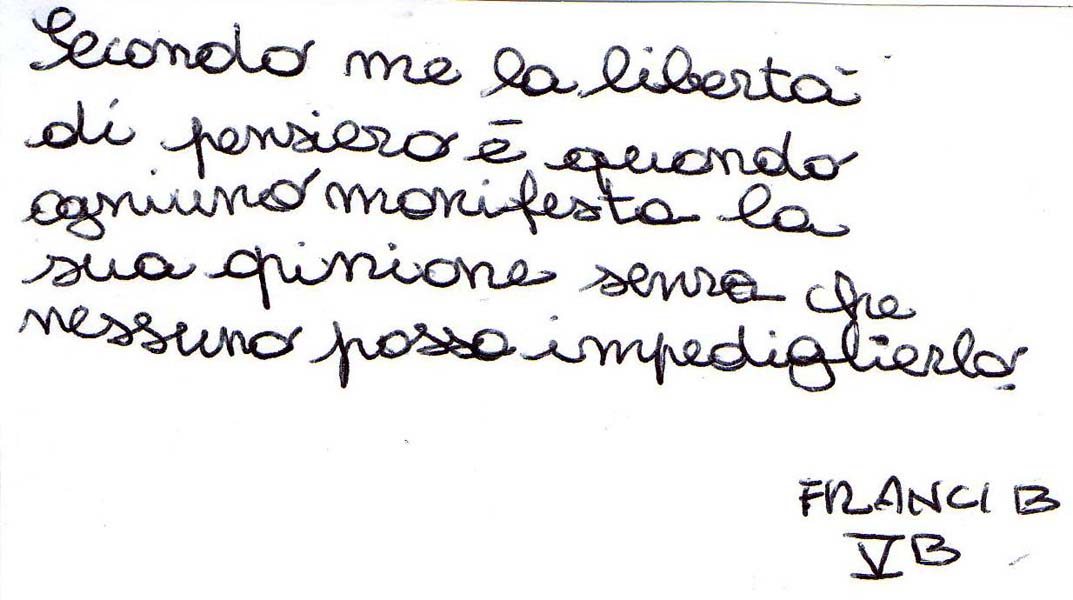 Secondo me la libertà
di pensiero è quando
ogniuno manifesta la
sua opinione senza che
nessuno possa impediglierlo.
FRANCI B
VB